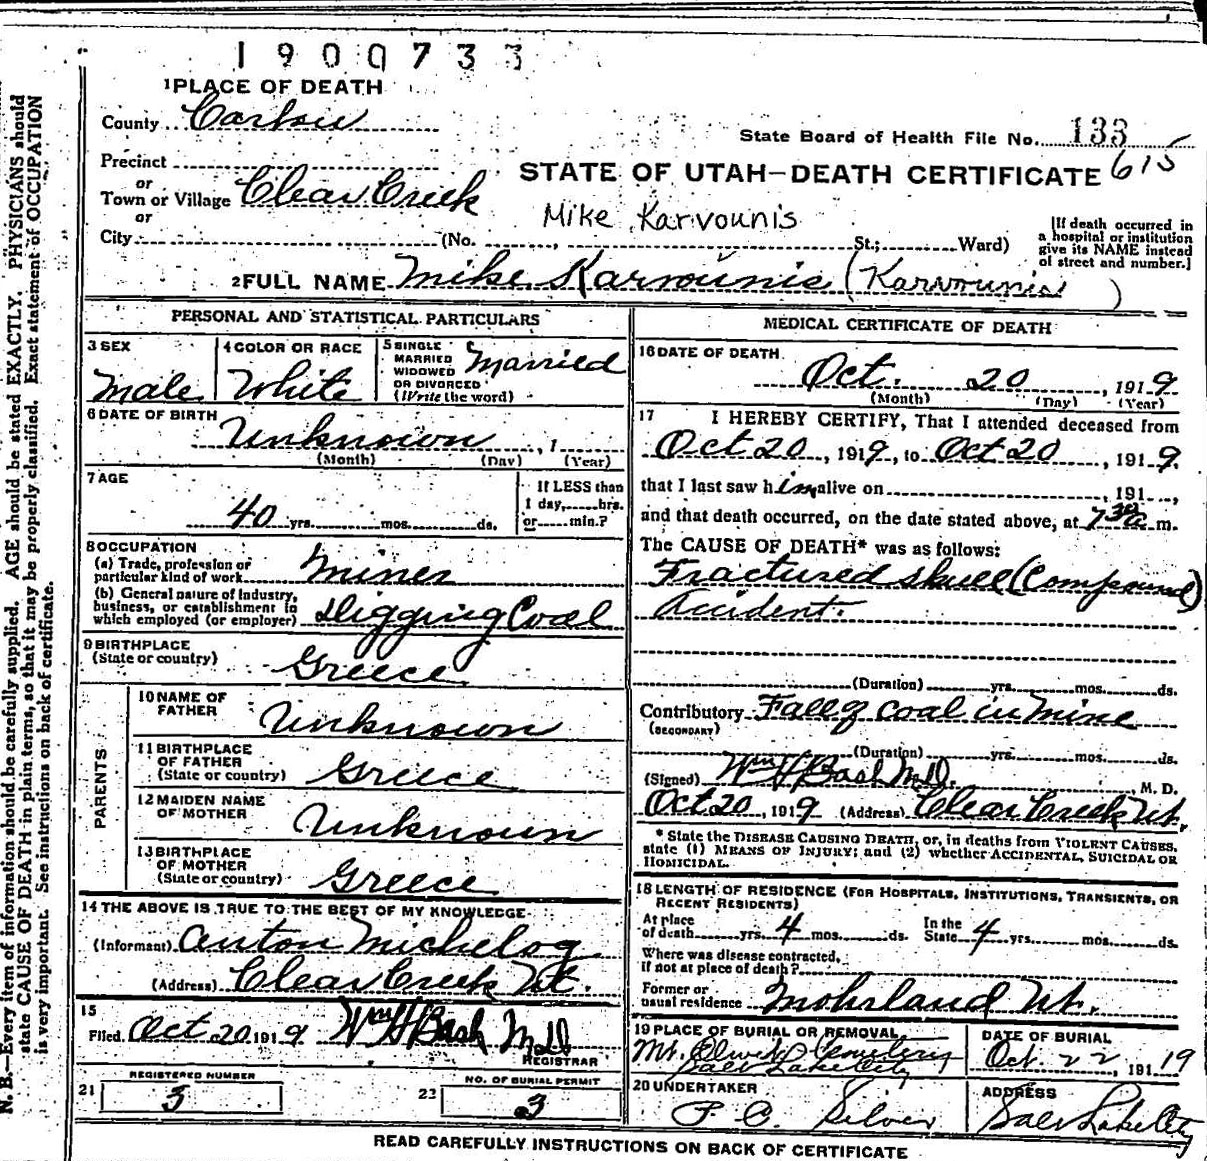 1900733
1 PLACE OF DEATH
County Carbon
State Board of Health File No. 133
615
Precinct
or
Town or Village Clear Creek
or
STATE OF UTAH—DEATH CERTIFICATE
Mike Karvounis
City (No. , St.; Ward)
[If death occurred in
a hospital or institution
give its NAME instead
of street and number.]
2 FULL NAME Mike Karvounis (Karvounis)
PERSONAL AND STATISTICAL PARTICULARS
3 SEX
Male
4 COLOR OR RACE
White
5 SINGLE
MARRIED
WIDOWED
OR DIVORCED
(Write the word)
Married
6 DATE OF BIRTH
Unknown , 1
(Month) (Day) (Year)
7 AGE
40 yrs. mos. ds.
If LESS than
1 day, hrs.
or min.?
8 OCCUPATION
(a) Trade, profession or
particular kind of work Miner
(b) General nature of Industry,
business, or establishment in
which employed (or employer) Digging Coal
9 BIRTHPLACE
(State or country) Greece
PARENTS
10 NAME OF
FATHER Unknown
11 BIRTHPLACE
OF FATHER
(State or country) Greece
12 MAIDEN NAME
OF MOTHER Unknown
13 BIRTHPLACE
OF MOTHER
(State or country) Greece
14 THE ABOVE IS TRUE TO THE BEST OF MY KNOWLEDGE
(Informant) Anton
(Address) Clear Creek Ut.
15
Filed Oct 20 1919 Wm H Bash M D
REGISTRAR
21 REGISTERED NUMBER
3
22 NO. OF BURIAL PERMIT
3
MEDICAL CERTIFICATE OF DEATH
16 DATE OF DEATH
Oct. 20 , 1919
(Month) (Day) (Year)
17 I HEREBY CERTIFY, That I attended deceased from
Oct 20 , 1919, to Oct 20 , 1919.
that I last saw him alive on , 191 ,
and that death occurred, on the date stated above, at 7 30 a m.
The CAUSE OF DEATH* was as follows:
Fractured skull (Compound)
Accident.
(Duration) yrs. mos. ds.
Contributory Fall of coal in mine
(SECONDARY)
(Duration) yrs. mos. ds.
(Signed) Wm H Bash M D. , M. D.
Oct 20 , 1919 (Address) Clear Creek Ut.
* State the DISEASE CAUSING DEATH, or, in deaths from VIOLENT CAUSES,
state (1) MEANS OF INJURY; and (2) whether ACCIDENTAL, SUICIDAL OR
HOMICIDAL.
18 LENGTH OF RESIDENCE (FOR HOSPITALS, INSTITUTIONS, TRANSIENTS, OR
RECENT RESIDENTS)
At place
of death yrs. 4 mos. ds. In the
State 4 yrs. mos. ds.
Where was disease contracted,
if not at place of death?
Former or
usual residence Mohrland Ut.
19 PLACE OF BURIAL OR REMOVAL
Mt. Cemetery
Salt Lake City
DATE OF BURIAL
Oct. 22 , 19119
20 UNDERTAKER
Silver
ADDRESS
Salt Lake City
READ CAREFULLY INSTRUCTIONS ON BACK OF CERTIFICATE
N. B.—Every item of information should be carefully supplied. AGE should be stated EXACTLY. PHYSICIANS should
state CAUSE OF DEATH in plain terms, so that it may be properly classified. Exact statement of OCCUPATION
is very important. See instructions on back of certificate.